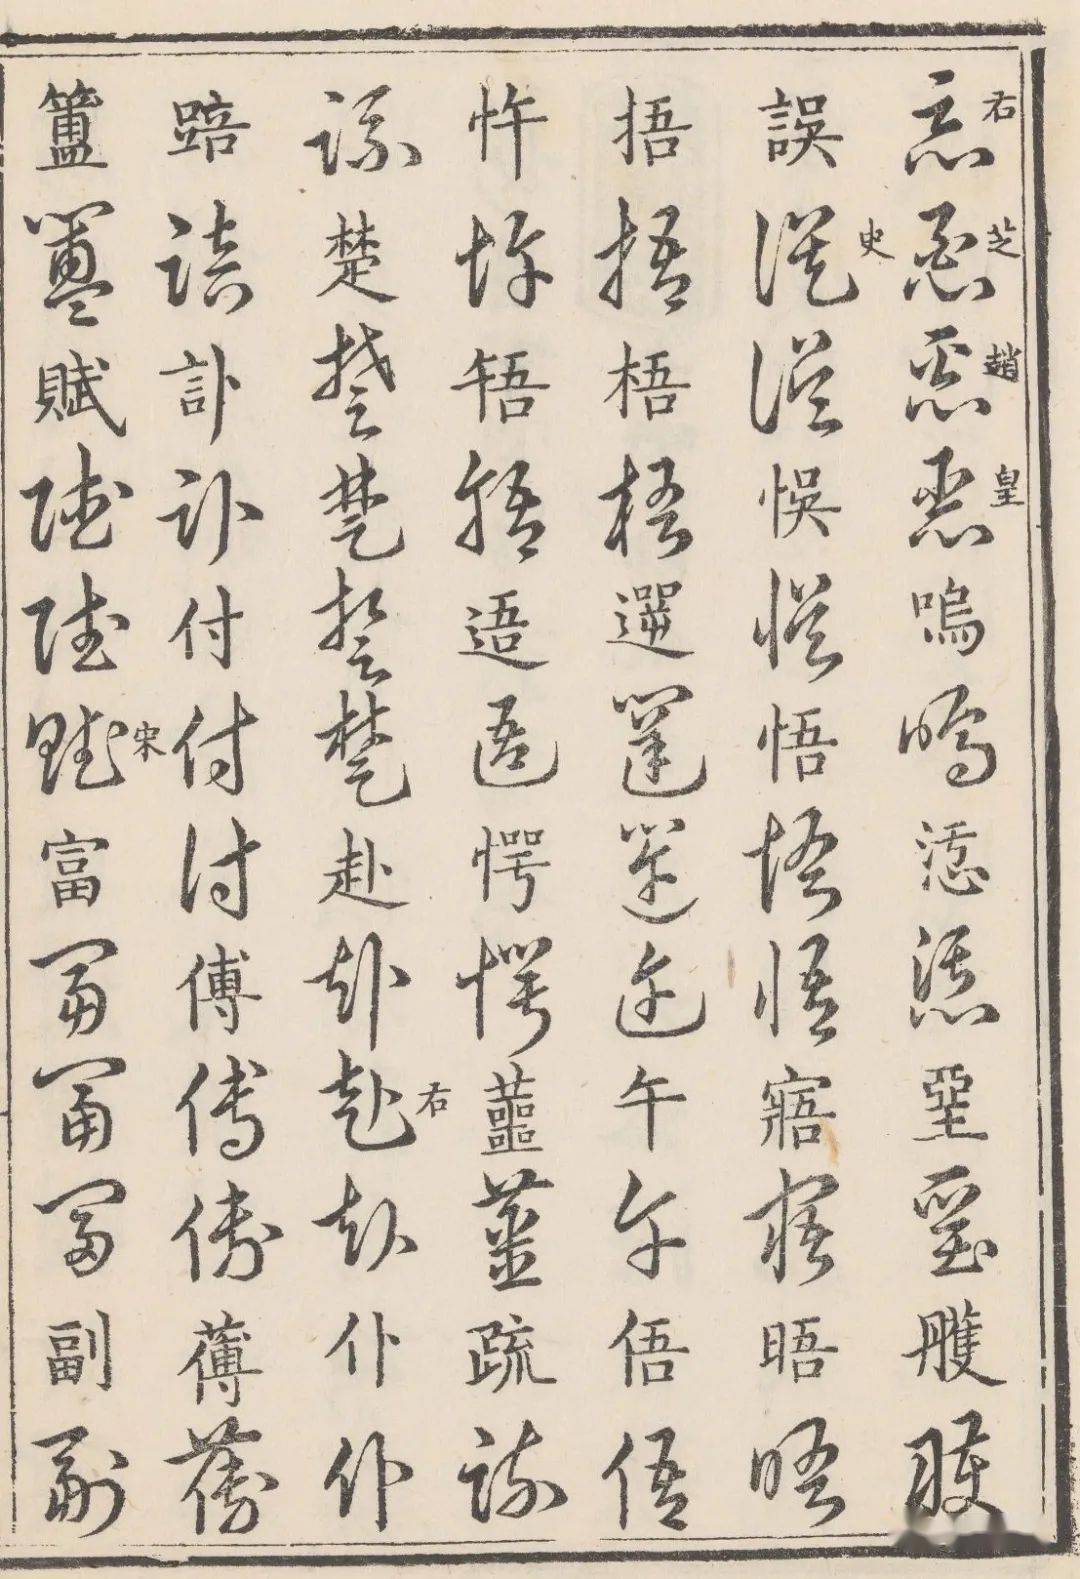 惡右惡芝惡趙惡皇嗚嗚堊堊雘雘
誤誤史誤悮悮悟悟悟寤寤晤晤
捂捂梧梧遻遻遻迕午午俉俉
忤忤啎啎逜逜愕愕蘁蘁疏疏
疏楚楚楚楚楚赴赴赴右赴仆仆
踣踣訃訃付付付傅傅傅
簠簠賦賦賦賦宋富富富富副副